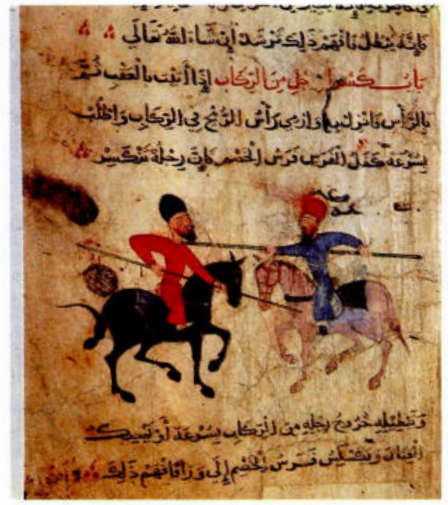 فإنه يبطل فافهم ذلك ترشد إن شاء الله تعالى
باب كسر رجل من الركاب إذا أتيت بالعقب ثم
بالرأس فانزل وارمي رأس الرمح في الركاب واطلب
بسرعة كفل الفرس فرس الخصم فإن رجله تنكسر
وتبطيله خروج رجله من الركاب بسرعة أو يمسك
العنان ويكس فرس الخصم إلى ورا فافهم ذلك